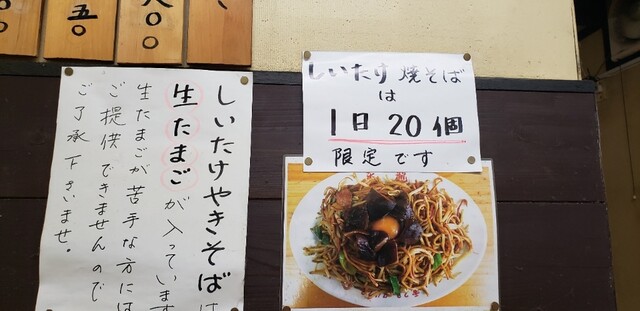 五〇
八〇〇
しいたけ焼そば
は
1日20個
限定です
しいたけやきそばは
生たまごが入っています
生たまごが苦手な方には
ご提供できませんので
ご了承下さいませ。